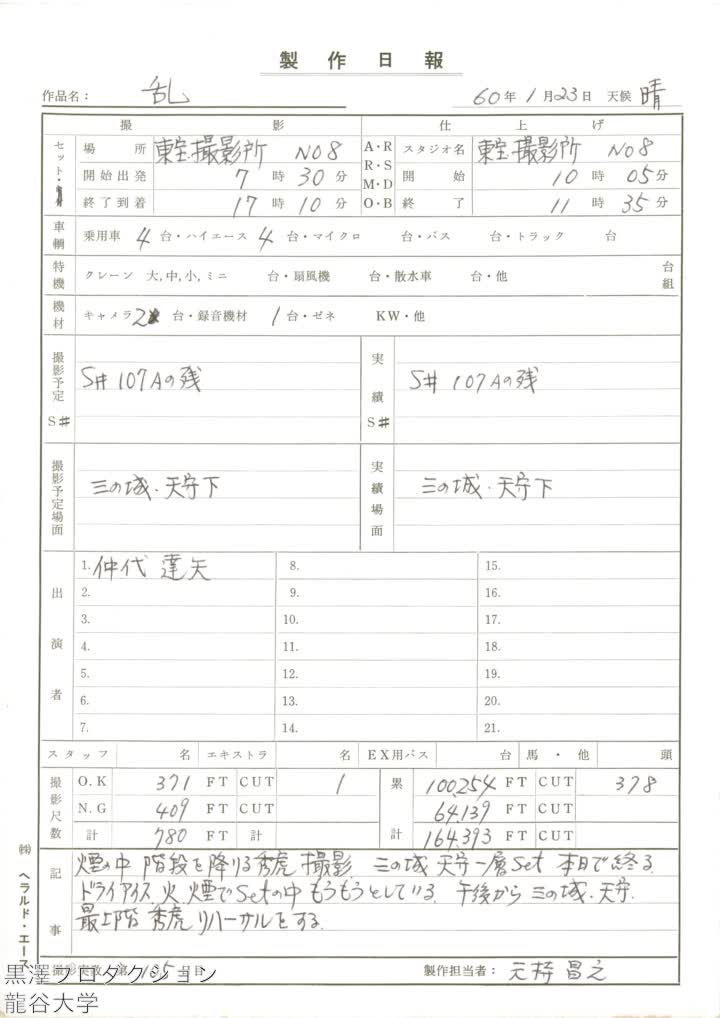 製作日報
作品名： 乱 60年 1月23日 天候 晴
撮影 仕上げ
セット・ 場所 東宝撮影所 NO8 A・R R・S M・D O・B スタジオ名 東宝撮影所 NO8
開始出発 7時30分 開始 10時05分
終了到着 17時10分 終了 11時35分
車輌 乗用車 4台・ハイエース 4台・マイクロ 台・バス 台・トラック 台
特機 クレーン 大,中,小,ミニ 台・扇風機 台・散水車 台・他 台組
機材 キャメラ 2台・録音機材 1台・ゼネ KW・他
撮影予定 S# S# 107Aの残 実績 S# S# 107Aの残
撮影予定場面 三の城・天守下 実績場面 三の城・天守下
出演者
1. 仲代達矢 8. 15.
2. 9. 16.
3. 10. 17.
4. 11. 18.
5. 12. 19.
6. 13. 20.
7. 14. 21.
スタッフ 名 エキストラ 名 EX用バス 台 馬・他 頭
撮影尺数 O.K 371 FT CUT 1 累計 100,254 FT CUT 378
N.G 409 FT CUT 64,139 FT CUT
計 780 FT 計 164,393 FT CUT
記事 煙の中 階段を降りる秀虎 撮影. 三の城 天守一層Set 本日で終る.
ドライアイス 火 煙でSetの中もうもうとしている. 午後から三の城・天守.
最上階 秀虎リハーサルをする.
撮影実数 第 135 日目 製作担当者：
㈱ヘラルド・エース
黒澤プロダクション
龍谷大学